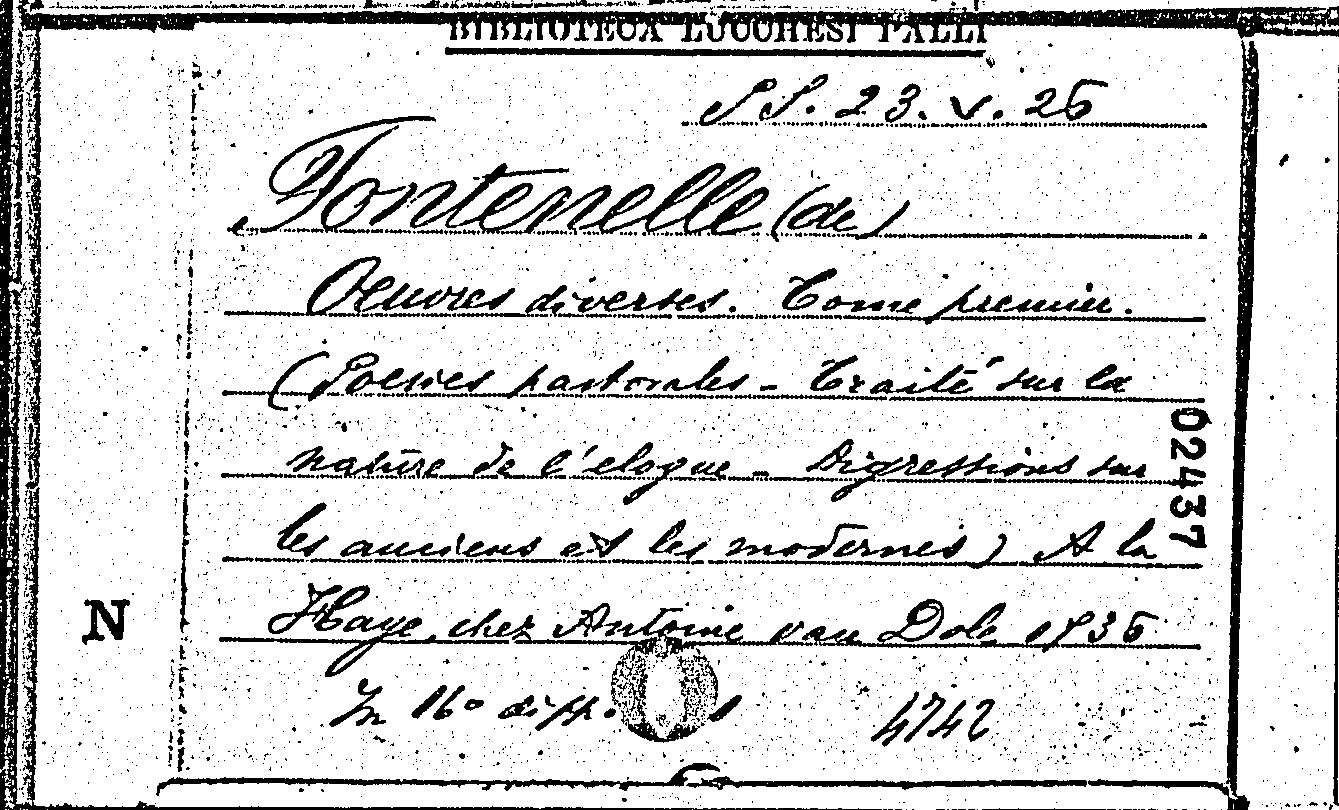 BIBLIOTECA LUCCHESI PALLI
SS. 23. V. 26
Fontenelle (de)
Oeuvres diverses. Tome premier.
(Poesies pastorales - Traité sur la
nature de l'elogue - Digressions sur
les anciens et les modernes) A la
Haye, chez Antoine van Dole 1736
In 16°
4742
02437
N